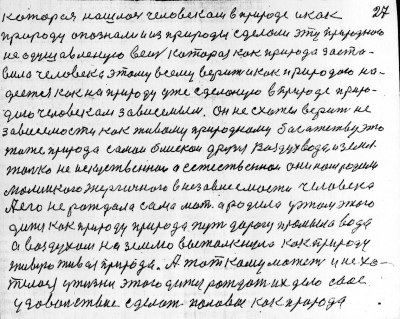 27
которая нашлоя человекам в природе и как
природу опознали и из природы сделали эту природною
не одушавленую вещ каторая как природа заста-
вила человека этому всему верить и как природою на-
деятся как на природу уже сделоную в природе приро-
дою человекам зависемым. Он не схател верить не
зависемости как живому природному багатству это
тоже природа самой близской друзя Воздух вода и земля
толко не искуственнои а естественнои они нам родили
человека
Него не рождала сама мать а родила у этом этого
дитя как природу природа путь дарогу промыла вода
а воздухом на землю вытолкнуло как природу
живую живая природа. А тот кому может и не ха-
телося у жизни этого дитя рождат их дело свое
удоволствие сделат половые как природа